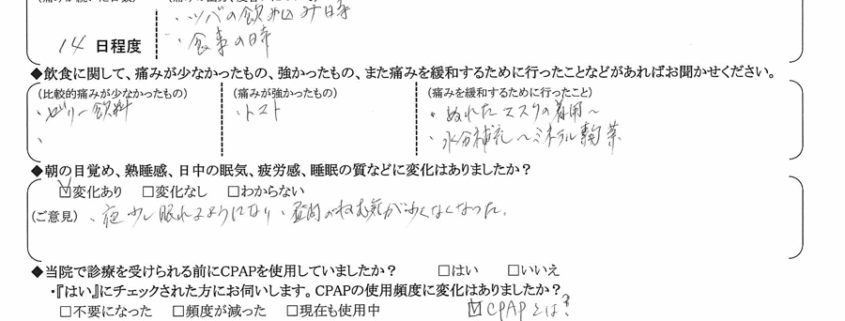 ・ツバの飲み込み時
14日程度
・食事の時
◆飲食に関して、痛みが少なかったもの、強かったもの、また痛みを緩和するために行ったことなどがあればお聞かせください。
(比較的痛みが少なかったもの) (痛みが強かったもの) (痛みを緩和するために行ったこと)
・ゼリー飲料 ・トスト ・ぬれたマスクの着用〜
・ ・水分補充〜ミネラル麹茶
◆朝の目覚め、熟睡感、日中の眠気、疲労感、睡眠の質などに変化はありましたか？
☑変化あり □変化なし □わからない
(ご意見) ・夜少し眠れるようになり、昼間のねむ気が少くなくなった。
◆当院で診療を受けられる前にCPAPを使用していましたか？ □はい □いいえ
・『はい』にチェックされた方にお伺いします。CPAPの使用頻度に変化はありましたか？
□不要になった □頻度が減った □現在も使用中 ☑CPAPとは？